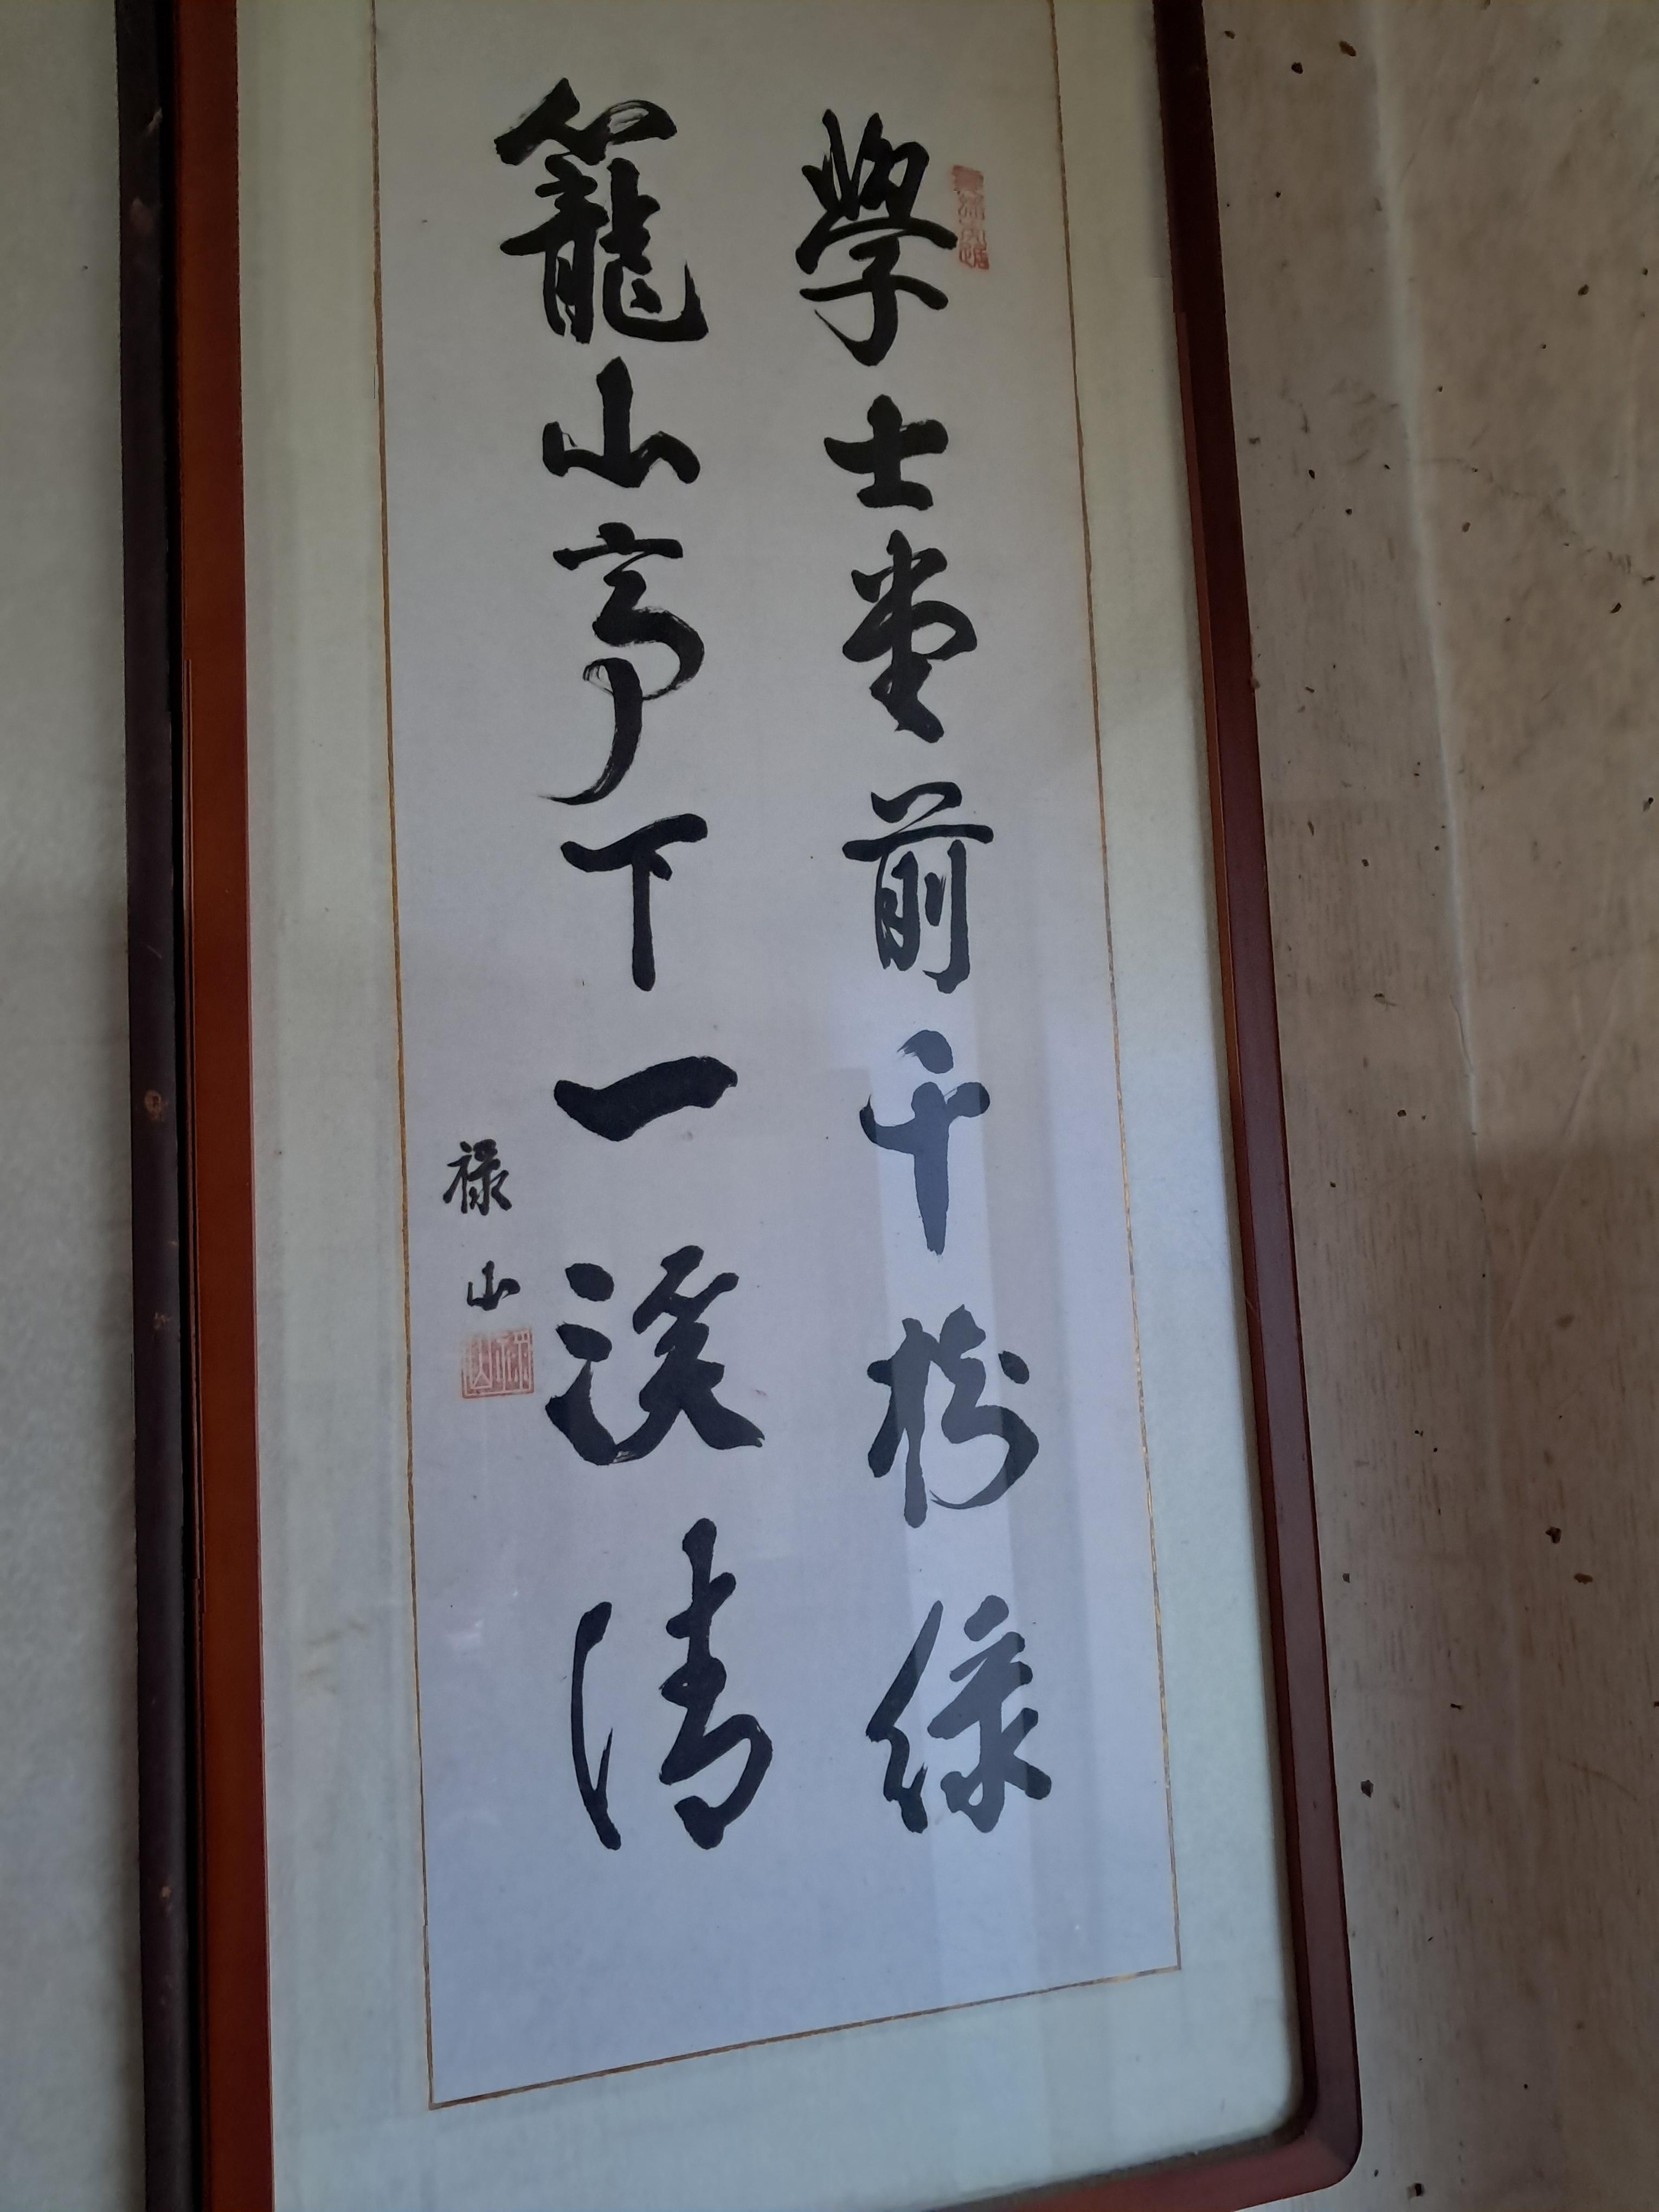 學士堂前千樹綠
籠山亭下一溪清
祿山